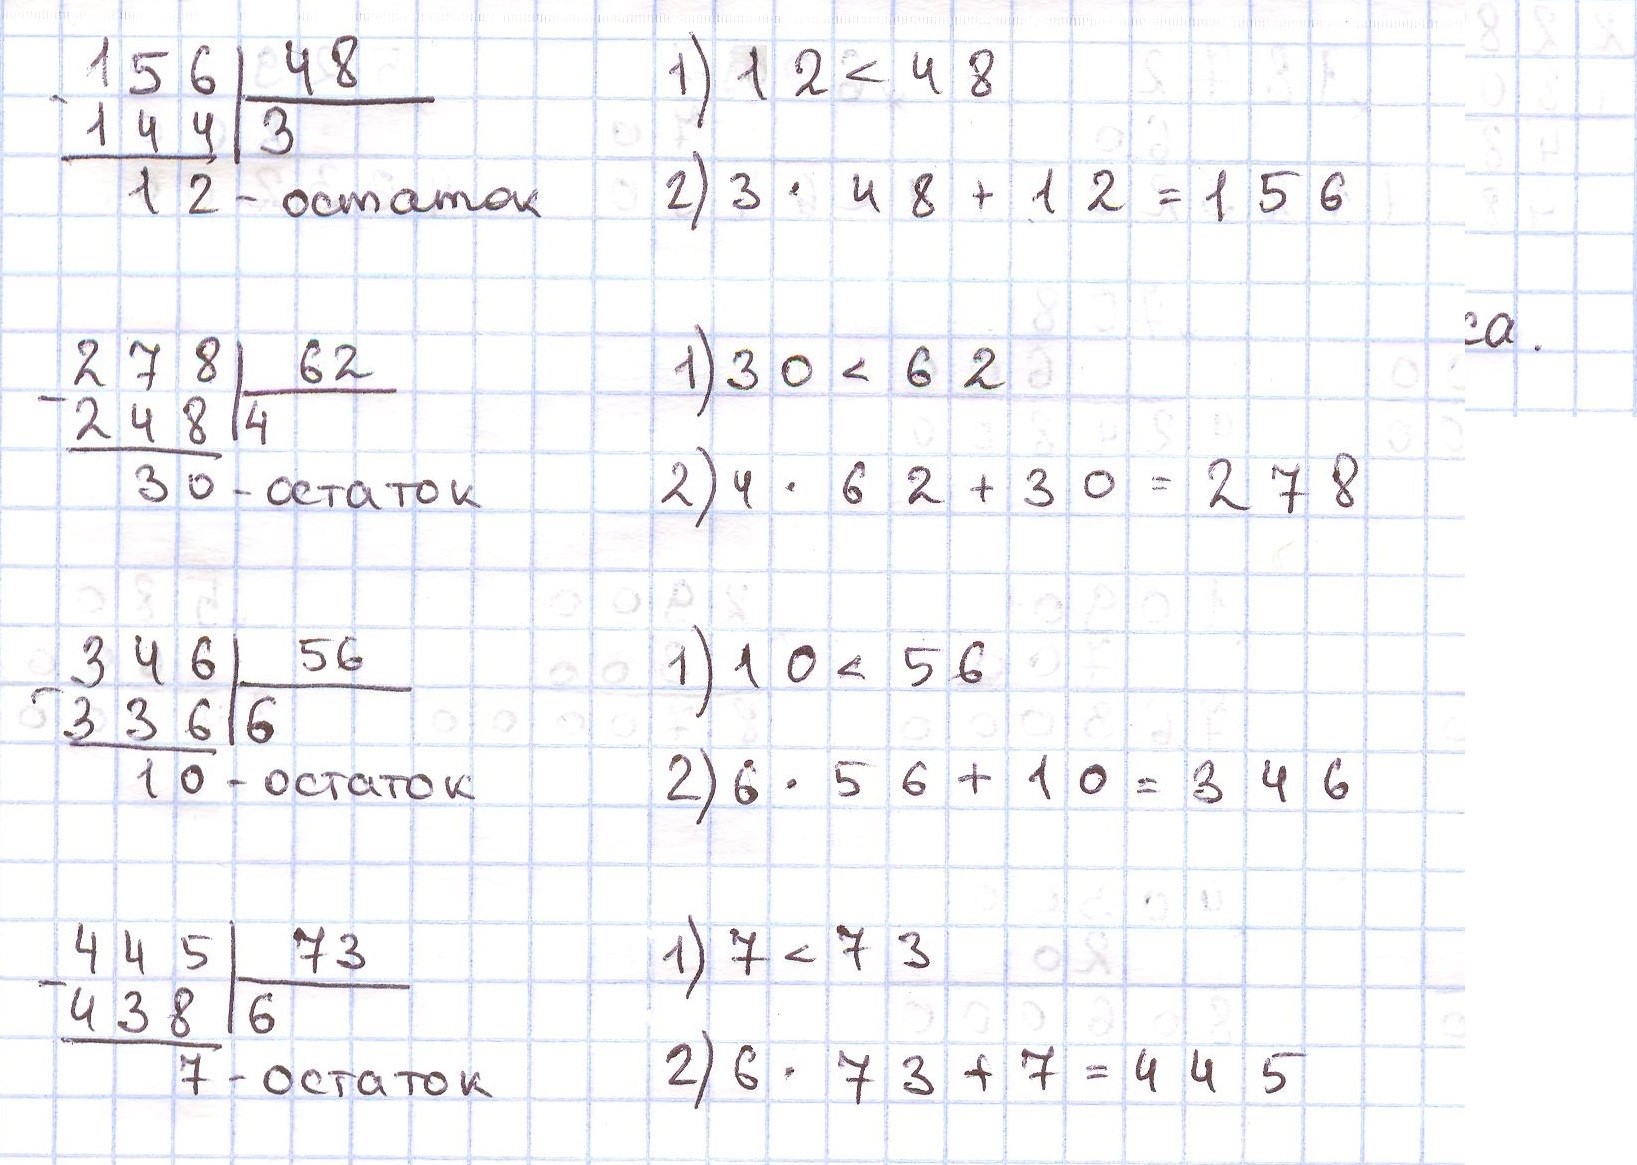 156 | 48 1) 12 < 48
- 144 | 3
12 - остаток 2) 3 · 48 + 12 = 156
са.
278 | 62 1) 30 < 62
- 248 | 4
30 - остаток 2) 4 · 62 + 30 = 278
346 | 56 1) 10 < 56
- 336 | 6
10 - остаток 2) 6 · 56 + 10 = 346
445 | 73 1) 7 < 73
- 438 | 6
7 - остаток 2) 6 · 73 + 7 = 445